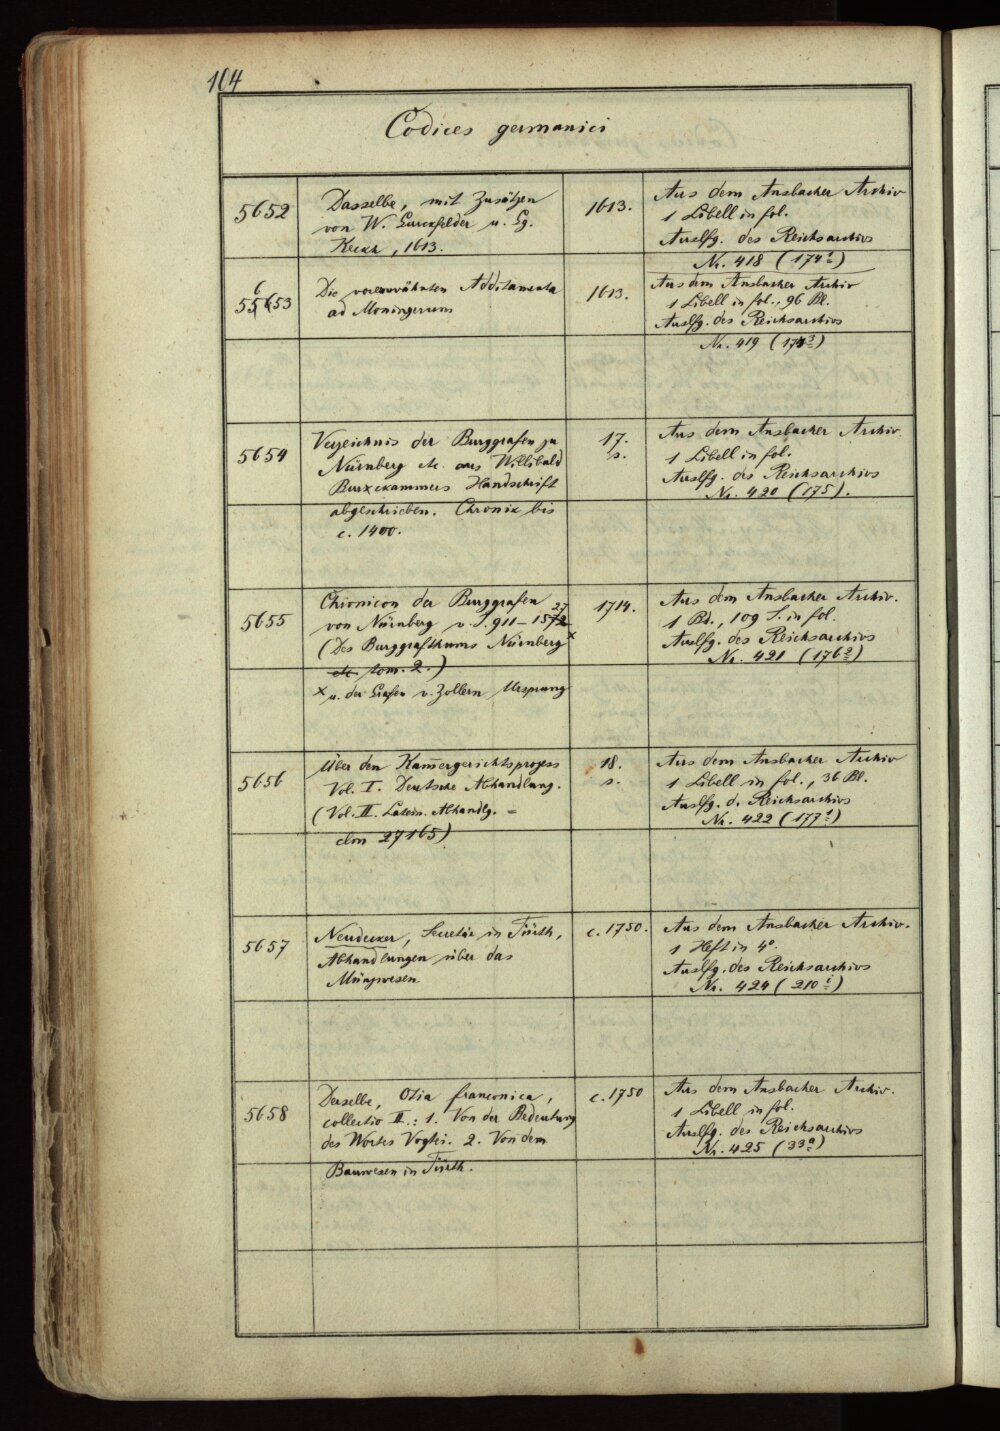 104
Codices germanici
5652
Dasselbe, mit Zusätzen
von W. Gurckfelder u. Gg.
Keckh, 1613.
1613.
Aus dem Ansbacher Archiv
1 Libell in fol.
Auslfg. des Reichsarchivs
Nr. 418 (174¹)
5653
Die vorerwähnten Additamenta
ad Moningerum
1613.
Aus dem Ansbacher Archiv
1 Libell in fol., 96 Bl.
Auslfg. des Reichsarchivs
Nr. 419 (174²)
5654
Verzeichnis der Burggrafen zu
Nürnberg etc. aus Willibald
Burxkammers Handschrift
abgeschrieben. Chronik bis
c. 1400.
17.
s.
Aus dem Ansbacher Archiv
1 Libell in fol.
Auslfg. des Reichsarchivs
Nr. 420 (175).
5655
Chronicon der Burggrafen
von Nürnberg v. J. 911–1527
(Des Burggrafthums Nürnberg x
etc. tom. 2.)
x u. der Grafen v. Zollern Ursprung
1714.
Aus dem Ansbacher Archiv.
1 Bd., 109 S. in fol.
Auslfg. des Reichsarchivs
Nr. 421 (176²)
5656
Über den Kam̄ergerichtsprozess
Vol. I. Deutsche Abhandlung.
(Vol. II. Latein. Abhandlg. =
clm 27165)
18.
s.
Aus dem Ansbacher Archiv
1 Libell in fol., 36 Bl.
Auslfg. d. Reichsarchivs
Nr. 422 (177¹)
5657
Neudecker, Secretär in Fürth,
Abhandlungen über das
Münzwesen
c. 1750.
Aus dem Ansbacher Archiv.
1 Heft in 4°.
Auslfg. des Reichsarchivs
Nr. 424 (210¹)
5658
Derselbe, Otia franconica,
collectio II.: 1. Von der Bedeutung
des Wortes Vogtei. 2. Von dem
Bauwesen in Fürth.
c. 1750
Aus dem Ansbacher Archiv.
1 Libell in fol.
Auslfg. des Reichsarchivs
Nr. 425 (33ª)